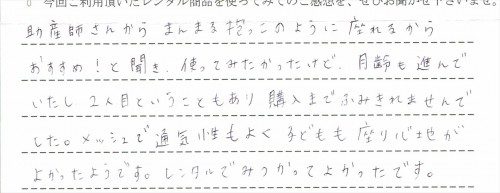 今回ご利用頂いたレンタル商品を使ってみてのご感想を、ぜひお聞かせ下さいませ。
助産師さんから まんまる抱っこのように 座れるから
おすすめ！と 聞き、使ってみたかったけど、月齢も進んで
いたし 2人目ということもあり 購入までふみきれませんで
した。メッシュで 通気性もよく 子どもも 座り心地が
よかったようです。レンタルでみつかってよかったです。